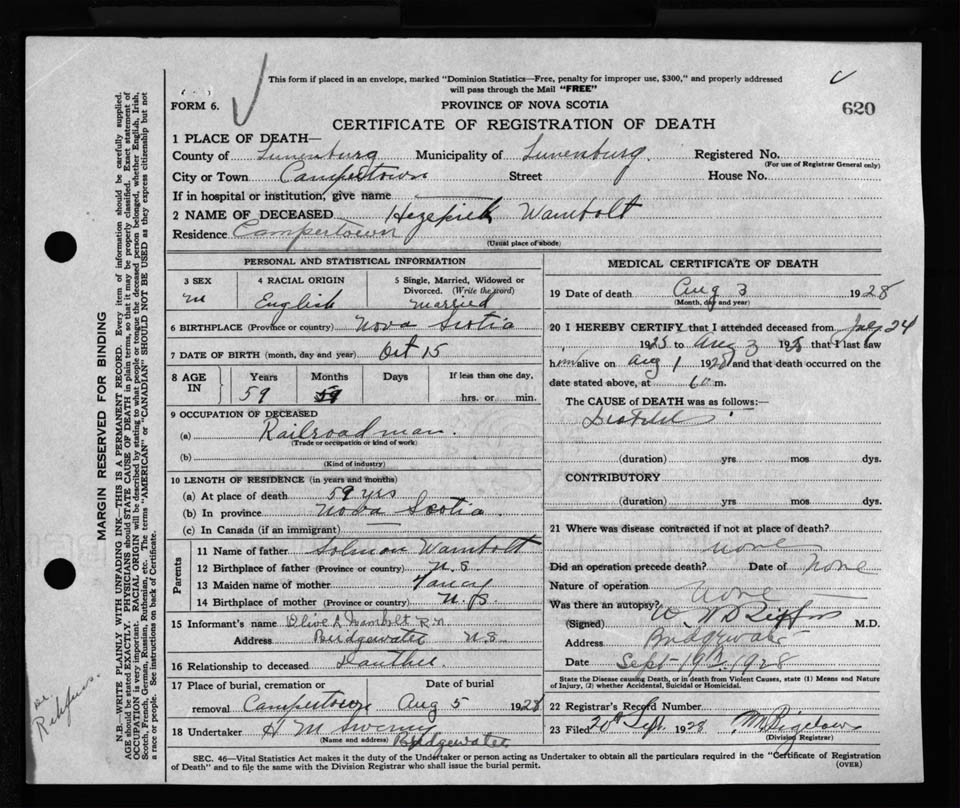 This form if placed in an envelope, marked "Dominion Statistics—Free, penalty for improper use, $300," and properly addressed
will pass through the Mail "FREE"
FORM 6.
PROVINCE OF NOVA SCOTIA
620
CERTIFICATE OF REGISTRATION OF DEATH
1 PLACE OF DEATH—
County of Lunenburg Municipality of Lunenburg Registered No.
(For use of Registrar General only)
City or Town Campertown Street House No.
If in hospital or institution, give name
2 NAME OF DECEASED Hezekiek Wambolt
Residence Campertown
(Usual place of abode)
PERSONAL AND STATISTICAL INFORMATION
3 SEX
M
4 RACIAL ORIGIN
English
5 Single, Married, Widowed or
Divorced. (Write the word)
Married
6 BIRTHPLACE (Province or country) Nova Scotia
7 DATE OF BIRTH (month, day and year) Oct 15
8 AGE IN
Years Months Days If less than one day,
59 hrs. or min.
9 OCCUPATION OF DECEASED
(a) Railroad man.
(Trade or occupation or kind of work)
(b)
(Kind of industry)
10 LENGTH OF RESIDENCE (in years and months)
(a) At place of death 59 yrs
(b) In province Nova Scotia.
(c) In Canada (if an immigrant)
Parents
11 Name of father Solmon Wambolt
12 Birthplace of father (Province or country) N.S
13 Maiden name of mother
14 Birthplace of mother (Province or country) N.S.
15 Informant's name Olive A Wambolt R.N.
Address Bridgewater N.S
16 Relationship to deceased
17 Place of burial, cremation or removal Campertown
Date of burial
Aug 5 1928
18 Undertaker H M
(Name and address) Bridgewater
MEDICAL CERTIFICATE OF DEATH
19 Date of death Aug 3 1928
(Month, day and year)
20 I HEREBY CERTIFY that I attended deceased from July 24
1928 to Aug 3 1928 that I last saw
him alive on Aug 1 1928 and that death occurred on the
date stated above, at m.
The CAUSE of DEATH was as follows:—
(duration) yrs mos dys.
CONTRIBUTORY
(duration) yrs mos dys.
21 Where was disease contracted if not at place of death?
none
Did an operation precede death? Date of none
Nature of operation none
Was there an autopsy?
(Signed) M.D.
Address Bridgewater
Date Sept 19th 1928
State the Disease causing Death, or in death from Violent Causes, state (1) Means and Nature
of Injury, (2) whether Accidental, Suicidal or Homicidal.
22 Registrar's Record Number
23 Filed 20th Sept. 1928 M Bigelow
(Division Registrar)
SEC. 46—Vital Statistics Act makes it the duty of the Undertaker or person acting as Undertaker to obtain all the particulars required in the "Certificate of Registration
of Death" and to file the same with the Division Registrar who shall issue the burial permit.
(OVER)
MARGIN RESERVED FOR BINDING
N.B.—WRITE PLAINLY WITH UNFADING INK—THIS IS A PERMANENT RECORD. Every item of information should be carefully supplied.
AGE should be stated EXACTLY. PHYSICIANS should STATE CAUSE OF DEATH in plain terms, so that it may be properly classified. Exact statement of
OCCUPATION is very important. RACIAL ORIGIN will be described by stating to what people or tongue the deceased person belonged, whether English, Irish,
Scotch, French, German, Russian, Ruthenian, etc. The terms "AMERICAN" or "CANADIAN" SHOULD NOT BE USED as they express citizenship but not
a race or people. See instructions on back of Certificate.